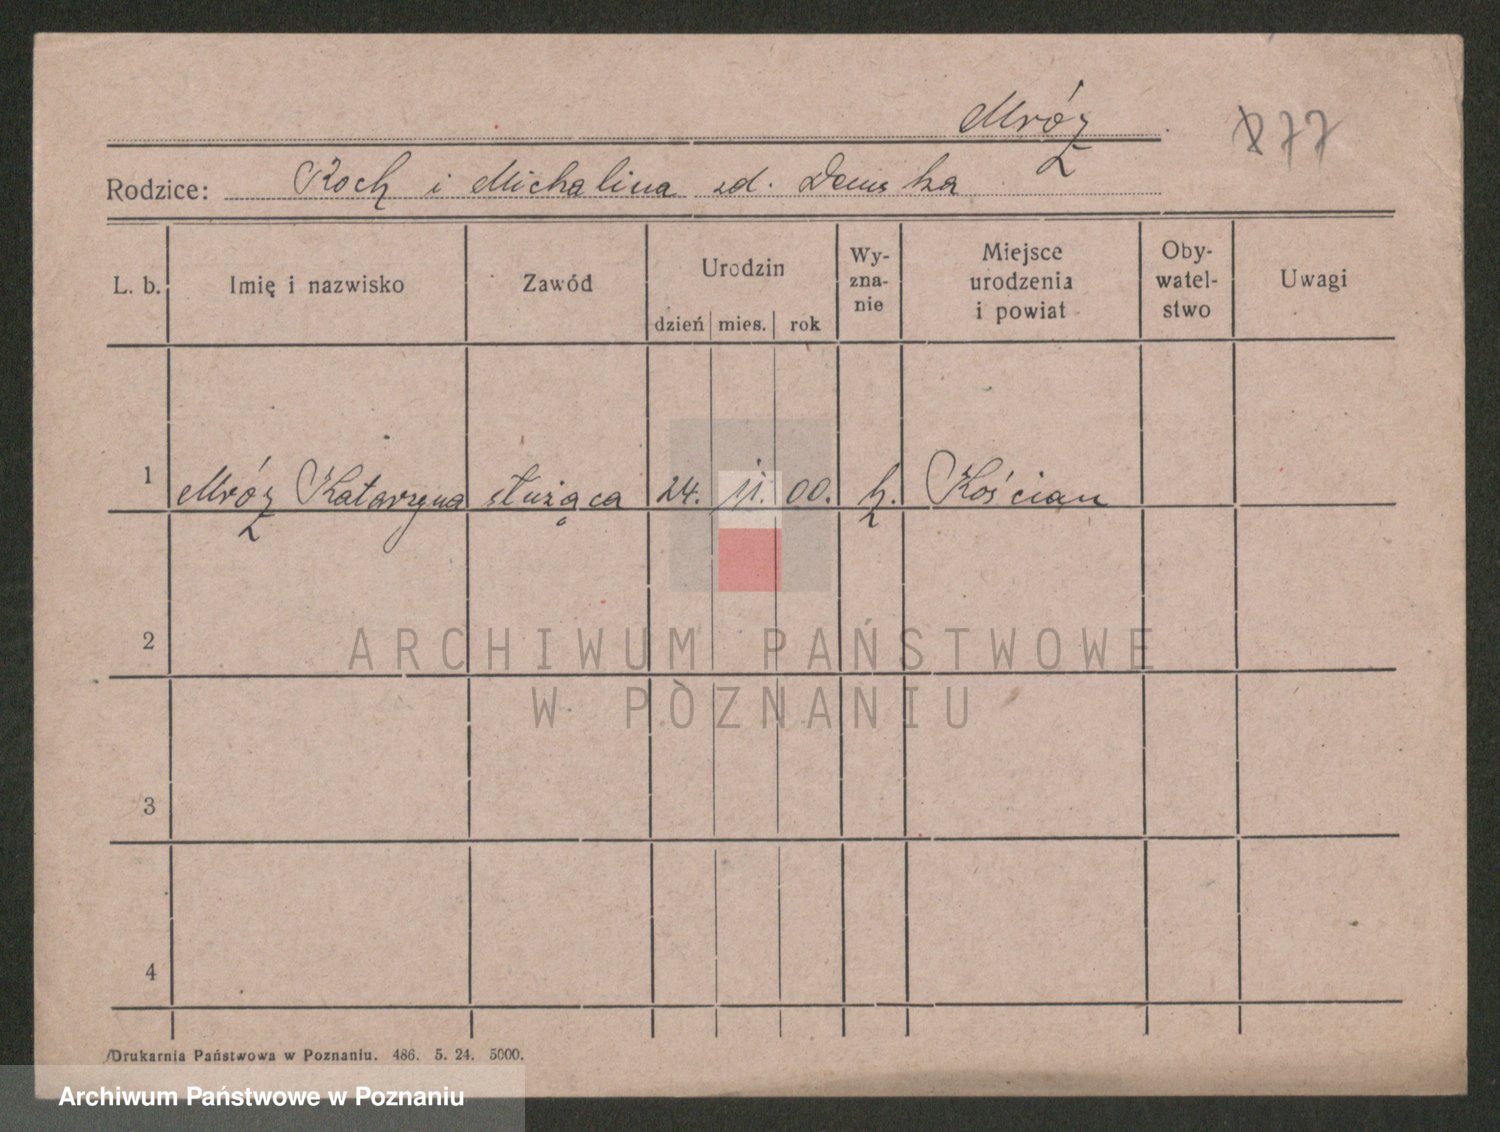 Mróz
877
Rodzice: Roch i Michalina zd. Demska
L. b. Imię i nazwisko Zawód Urodzin dzień mies. rok Wy-zna-nie Miejsce urodzenia i powiat Oby-watel-stwo Uwagi
1 Mróz Katarzyna służąca 24. 11. 00. k. Kościan
2
3
4
Drukarnia Państwowa w Poznaniu. 486. 5. 24. 5000.
ARCHIWUM PAŃSTWOWE
W POZNANIU
Archiwum Państwowe w Poznaniu